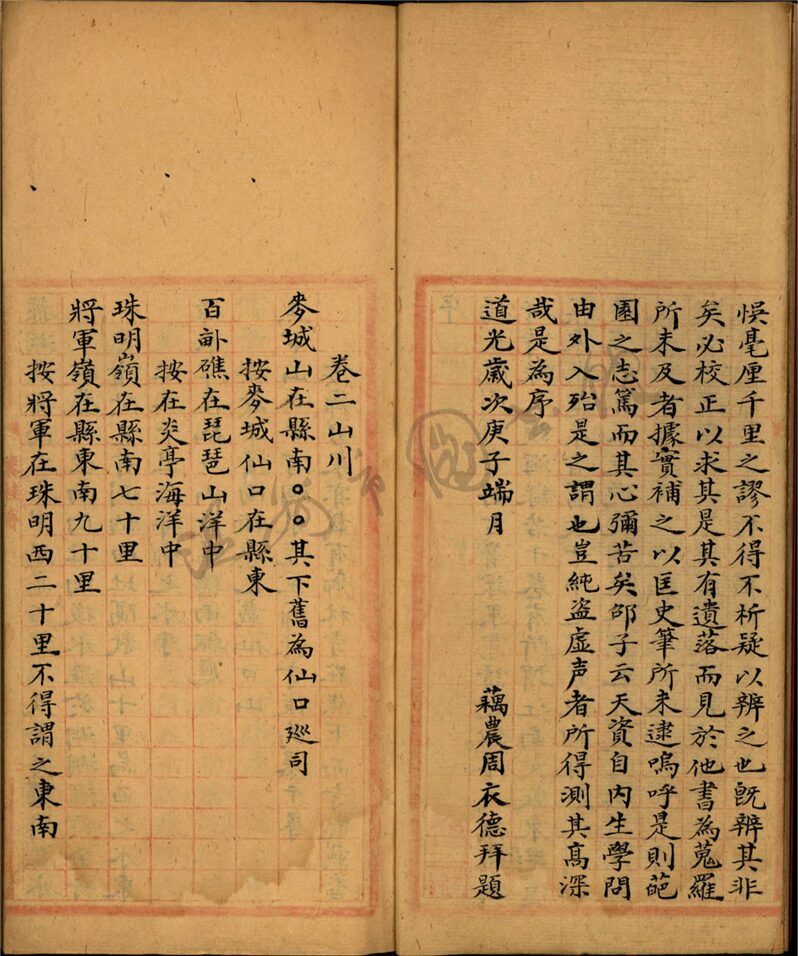 悮毫厘千里之謬不得不析疑以辨之也旣辨其非
矣必校正以求其是其有遺落而見於他書為蒐羅
所未及者據實補之以匡史筆所未逮嗚呼是則葩
園之志篤而其心彌苦矣邵子云天資自內生學問
由外入殆是之謂也豈純盜虛声者所得測其高深
哉是為序
道光歲次庚子端月 藕農周衣德拜題
卷二山川
麥城山在縣南〇〇其下舊為仙口廵司
按麥城仙口在縣東
百畝礁在琵琶山洋中
按在炎亭海洋中
珠明嶺在縣南七十里
將軍嶺在縣東南九十里
按將軍在珠明西二十里不得謂之東南